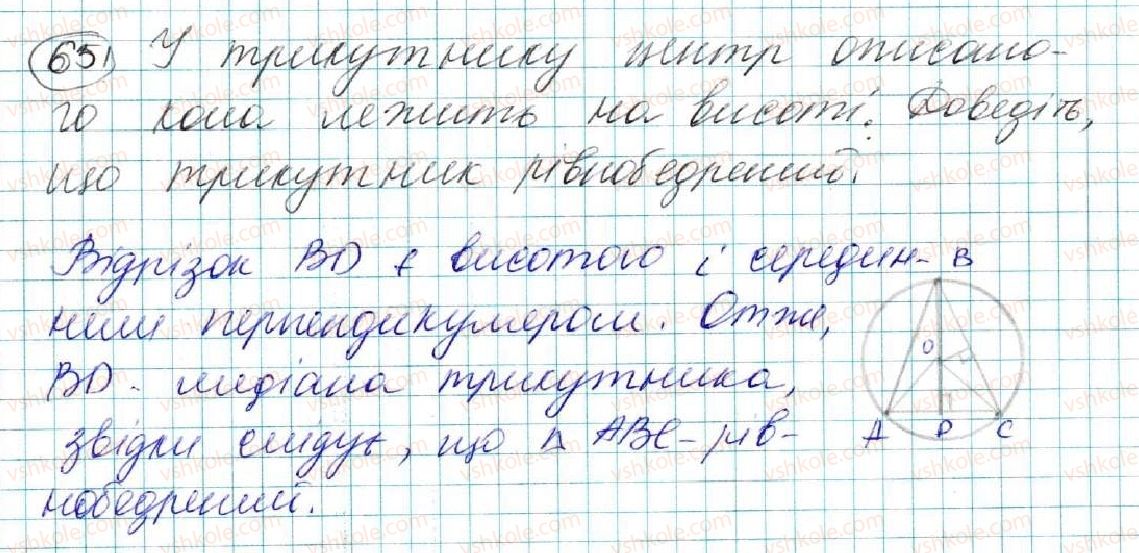 651 У трикутнику центр описано-
го кола лежить на висоті. Доведіть,
що трикутник рівнобедрений.
Відрізок BD є висотою і середин-
ним перпендикуляром. Отже,
BD - медіана трикутника,
звідки слідує, що Δ ABC - рів-
нобедрений.
B
O
A D C
vshkole.com